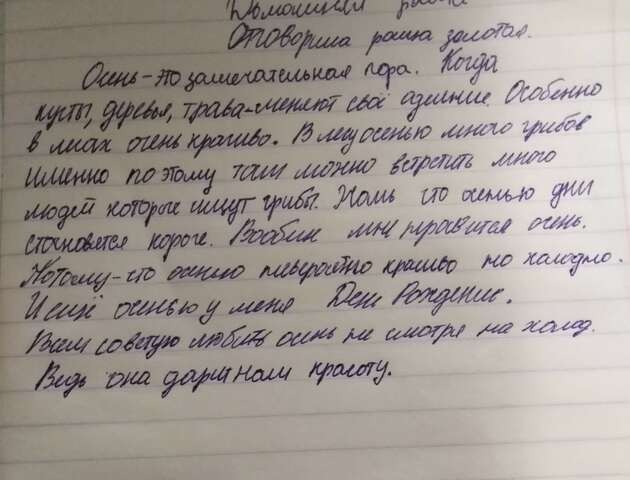 Домашняя работа
Отговорила роща золотая.
Осень-это замечательная пора. Когда
кусты, деревья, трава-меняют своё одеяние. Особенно
в лесах очень красиво. В лесу осенью много грибов
именно по этому там можно встретить много
людей которые ищут грибы. Жаль что осенью дни
становятся короче. Вообщем мне нравится осень.
Потому-что осенью невероятно красиво но холодно.
И ещё осенью у меня День Рождения.
Всем советую любить осень не смотря на холод.
Ведь она дарит нам красоту.